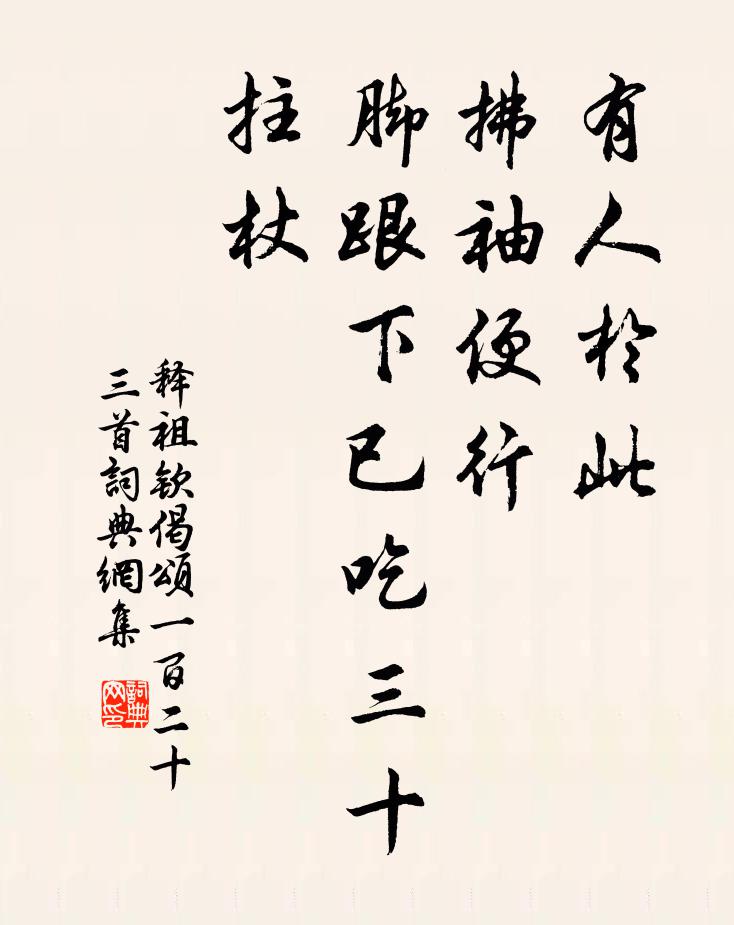 有人於此
拂袖便行
脚跟下已吃三十
拄杖
释祖钦偈頌一百二十
三首詞典網集
詞典
网印